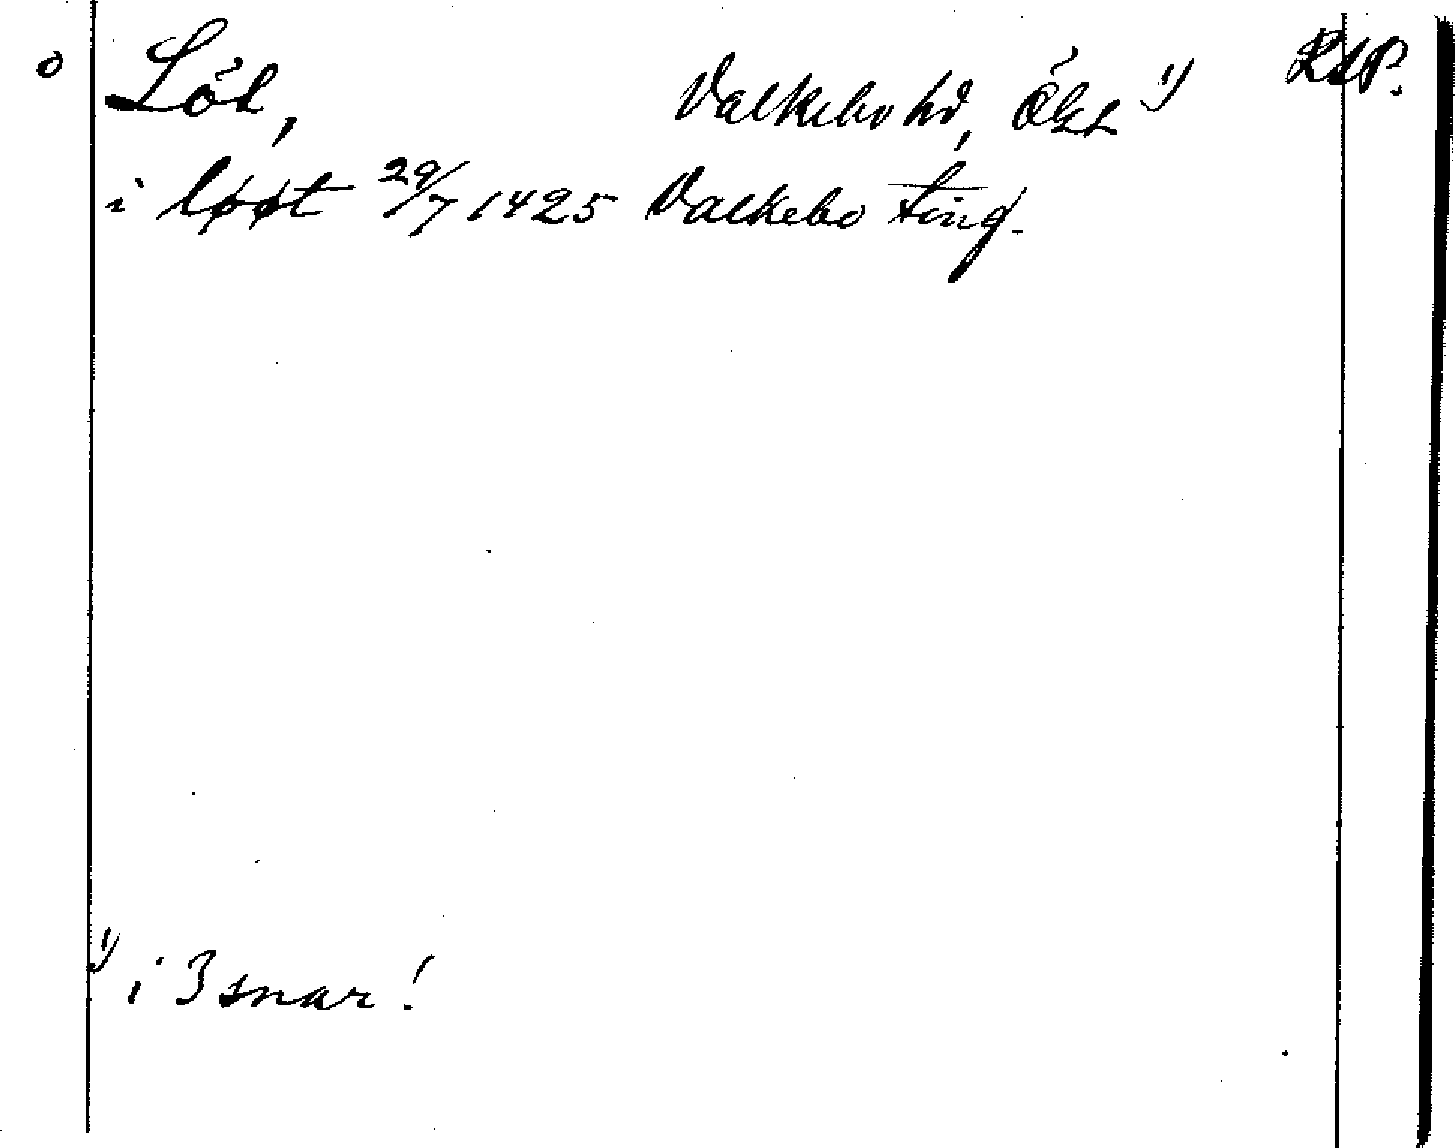 o Löt, Valkebo hd, Ögl 1) RAP.
i løøt 29/7 1425 Valkebo ting.
1) i 3 snar!